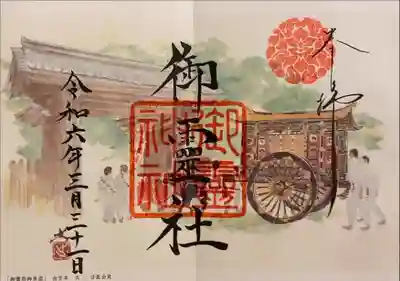 奉拝
御靈社
御靈神社
令和六年三月三十一日